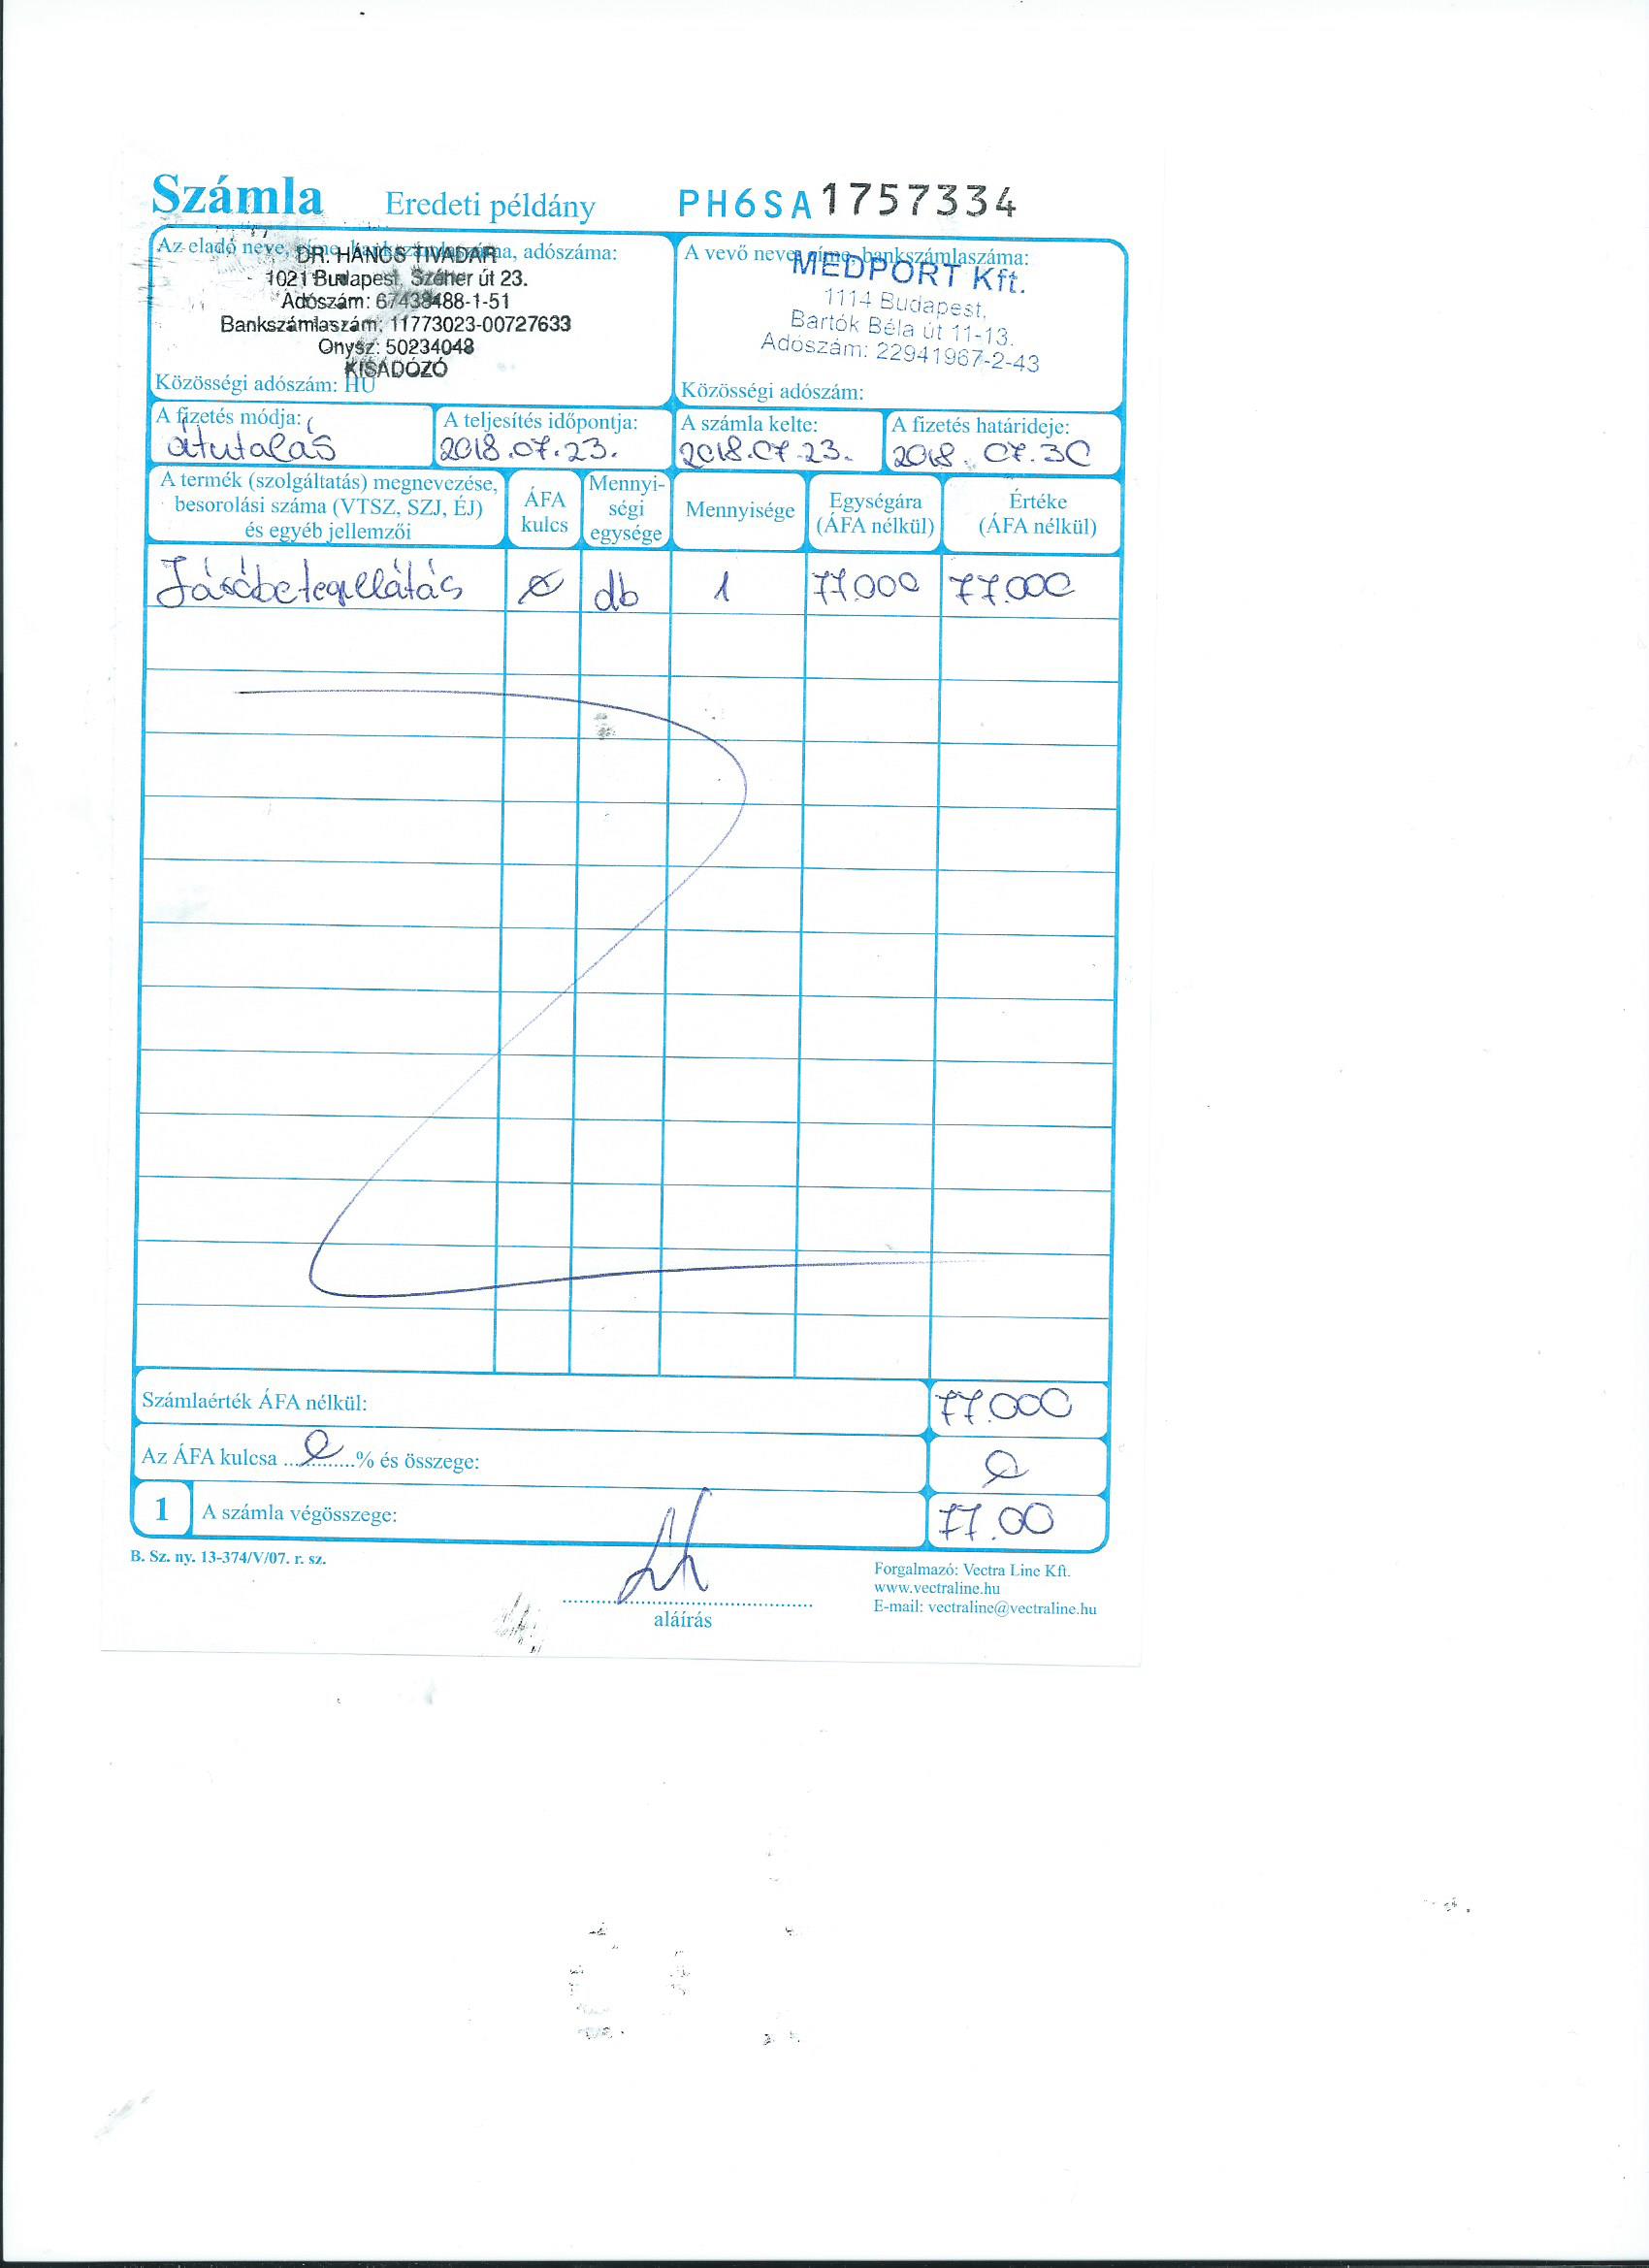 Számla Eredeti példány PH6SA1757334
Az eladó neve, címe, bankszámlaszáma, adószáma:
DR. HÁNOS TIVADAR
1021 Budapest, Széher út 23.
Adószám: 67438488-1-51
Bankszámlaszám: 11773023-00727633
Onysz: 50234048
KISADÓZÓ
Közösségi adószám: HU
A vevő neve, címe, bankszámlaszáma:
MEDPORT Kft.
1114 Budapest,
Bartók Béla út 11-13.
Adószám: 22941967-2-43
Közösségi adószám:
A fizetés módja: A teljesítés időpontja: A számla kelte: A fizetés határideje:
átutalás 2018.07.23. 2018.07.23. 2018.07.30
A termék (szolgáltatás) megnevezése,
besorolási száma (VTSZ, SZJ, ÉJ)
és egyéb jellemzői
ÁFA
kulcs
Mennyi-
ségi
egysége
Mennyisége
Egységára
(ÁFA nélkül)
Értéke
(ÁFA nélkül)
Járóbetegellátás 0 db 1 77.000 77.000
Számlaérték ÁFA nélkül: 77.000
Az ÁFA kulcsa ...0...% és összege: 0
1 A számla végösszege: 77.00
B. Sz. ny. 13-374/V/07. r. sz.
aláírás
Forgalmazó: Vectra Line Kft.
www.vectraline.hu
E-mail: vectraline@vectraline.hu